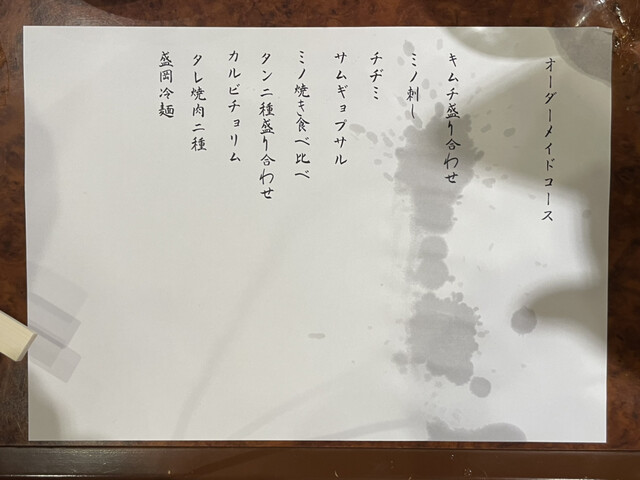 オーダーメイドコース
キムチ盛り合わせ
ミノ刺し
チヂミ
サムギョプサル
ミノ焼き食べ比べ
タン二種盛り合わせ
カルビチョリム
タレ焼肉二種
盛岡冷麺